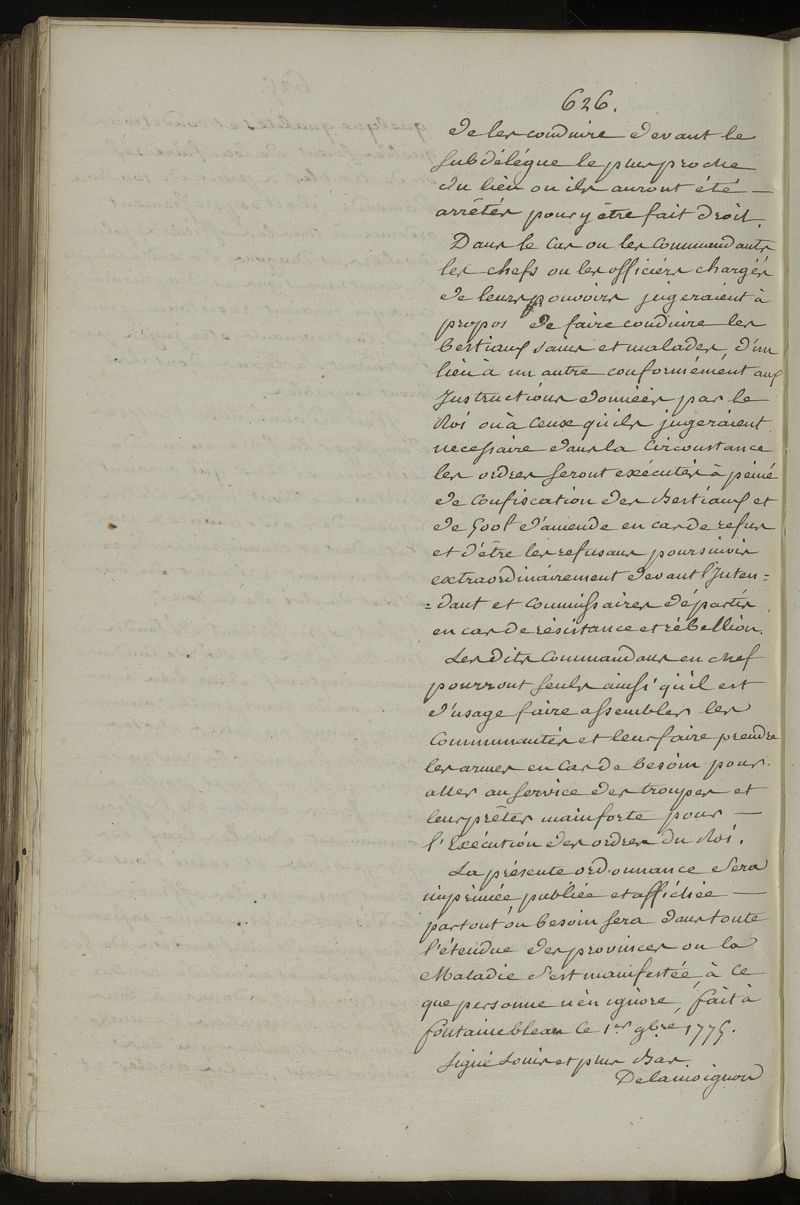 626.
de les conduire devant le
subdélégué le plus proche
du lieu ou ils auront été —
arrêtés pour y être fait droit.
Dans le cas ou les commandants
les chefs ou les officiers chargés
de leurs pouvoirs jugeraient à
propos de faire conduire les
bestiaux sains et malades, d'un
lieu à un autre conformément aux
Instructions données par le
Roi ou à ceux qu'ils jugeraient
necessaire dans la circonstance
les ordres seront exécutés à peine
de confiscation des Bestiaux et
de 500# d'amende en cas de refus
et d'être les refusans poursuivis
extraordinairement devant l'Inten=
=dant et commissaires départis
en cas de résistance et rébellion.
Les dits commandans en chef
pourront seuls ainsi qu'il est
d'usage faire assembler les
communautés et leur faire prendre
les armes en cas de besoin pour
aller au service des troupes et
leur prêter mainforte pour —
l'Exécution des ordres du Roi.
La présente ordonnance sera
imprimée publiée et affichée —
partout ou besoin sera dans toute
l'étendue des provinces ou la
Maladie s'est manifestée, à ce
que personne n'en ignore, fait à
fontainebleau ce 1er 9bre 1775.
Signé Louis et plus Bas.
Delamoignon